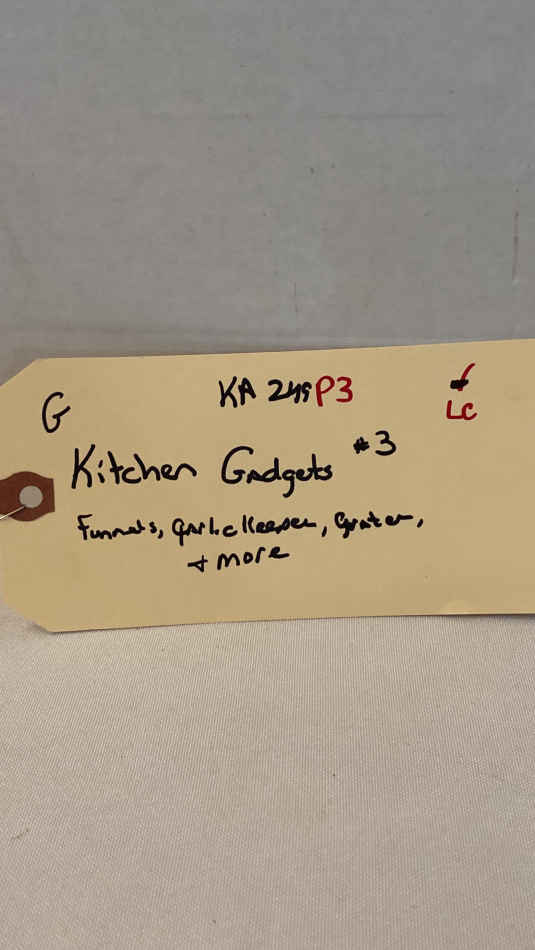 G
KA 249 P3
LC
Kitchen Gadgets #3
Funnels, Garlic Keeper, Grater,
+ more